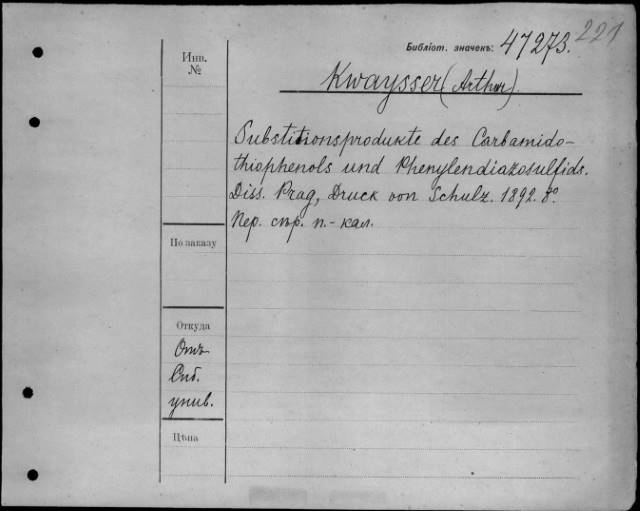 221
Библіот. значекъ: 47273.
Инв.
№
Kwaysser (Arthur)
Substitionsprodukte des Carbamido-
thiophenols und Phenylendiazosulfids.
Diss. Prag, Druck von Schulz. 1892. 8°.
Пер. сѣр. п.-кал.
По заказу
Откуда
Отъ
Спб.
унив.
Цѣна